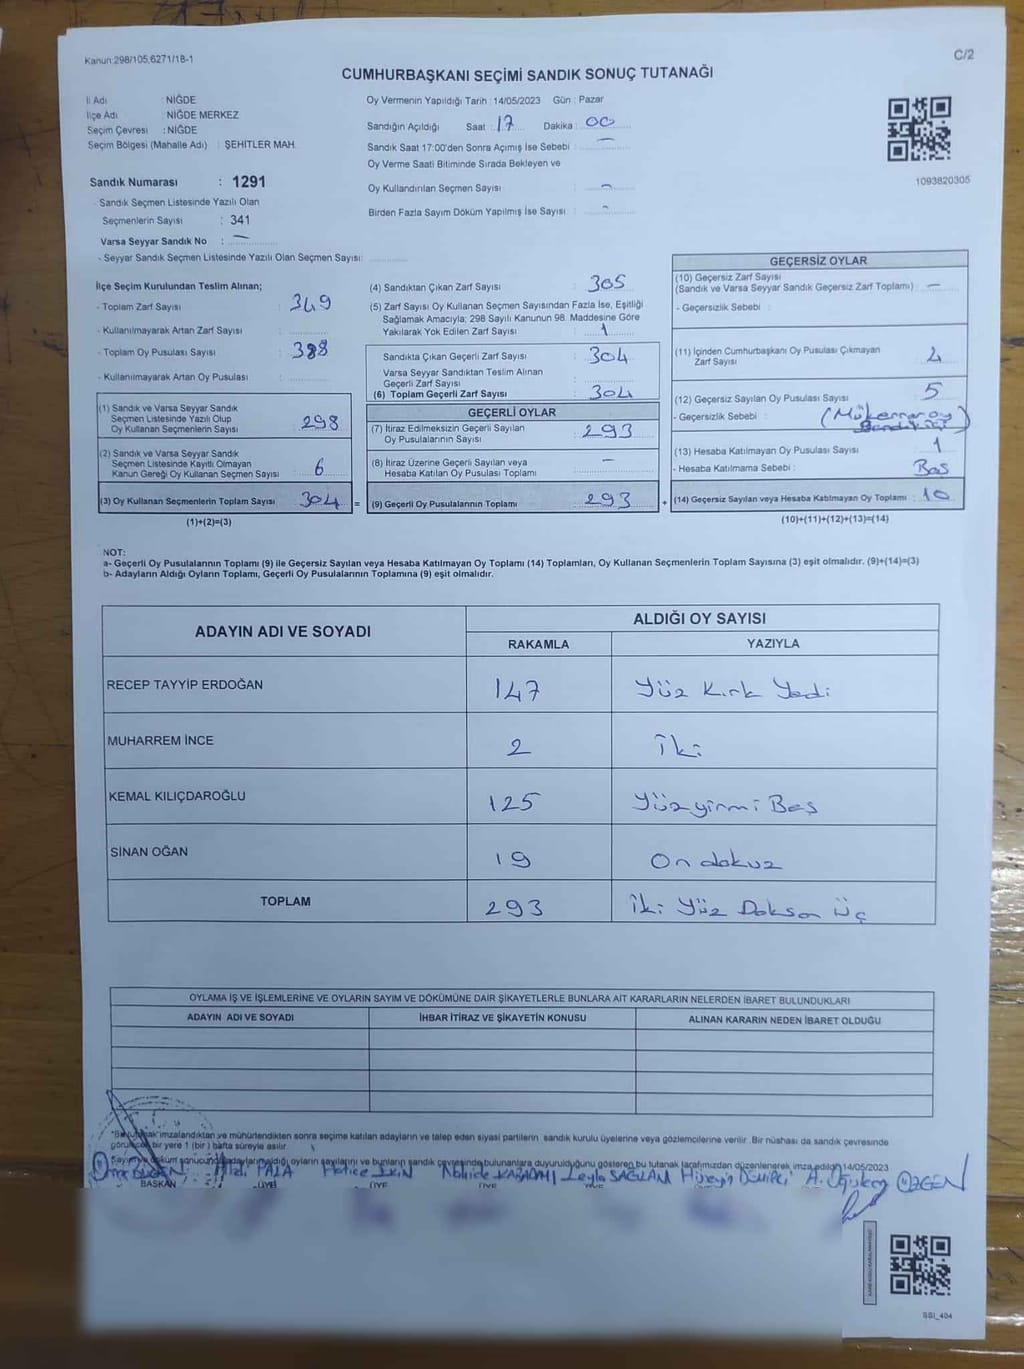 Kanun:298/105,6271/18-1
C/2
CUMHURBAŞKANI SEÇİMİ SANDIK SONUÇ TUTANAĞI
İl Adı : NİĞDE
İlçe Adı : NİĞDE MERKEZ
Seçim Çevresi : NİĞDE
Seçim Bölgesi (Mahalle Adı) : ŞEHİTLER MAH.
Oy Vermenin Yapıldığı Tarih : 14/05/2023 Gün : Pazar
Sandığın Açıldığı Saat : 17 Dakika : 00
Sandık Saat 17:00'den Sonra Açımış İse Sebebi : —
Oy Verme Saati Bitiminde Sırada Bekleyen ve
Oy Kullandırılan Seçmen Sayısı : —
Birden Fazla Sayım Döküm Yapılmış İse Sayısı : -
1093820305
Sandık Numarası : 1291
- Sandık Seçmen Listesinde Yazılı Olan
Seçmenlerin Sayısı : 341
Varsa Seyyar Sandık No : —
- Seyyar Sandık Seçmen Listesinde Yazılı Olan Seçmen Sayısı:
İlçe Seçim Kurulundan Teslim Alınan;
- Toplam Zarf Sayısı : 349
- Kullanılmayarak Artan Zarf Sayısı :
- Toplam Oy Pusulası Sayısı : 388
- Kullanılmayarak Artan Oy Pusulası :
(1) Sandık ve Varsa Seyyar Sandık
Seçmen Listesinde Yazılı Olup
Oy Kullanan Seçmenlerin Sayısı : 298
(2) Sandık ve Varsa Seyyar Sandık
Seçmen Listesinde Kayıtlı Olmayan
Kanun Gereği Oy Kullanan Seçmen Sayısı : 6
(3) Oy Kullanan Seçmenlerin Toplam Sayısı : 304
(1)+(2)=(3)
(4) Sandıktan Çıkan Zarf Sayısı : 305
(5) Zarf Sayısı Oy Kullanan Seçmen Sayısından Fazla İse, Eşitliği
Sağlamak Amacıyla; 298 Sayılı Kanunun 98. Maddesine Göre
Yakılarak Yok Edilen Zarf Sayısı : 1
Sandıkta Çıkan Geçerli Zarf Sayısı : 304
Varsa Seyyar Sandıktan Teslim Alınan
Geçerli Zarf Sayısı :
(6) Toplam Geçerli Zarf Sayısı : 304
GEÇERLİ OYLAR
(7) İtiraz Edilmeksizin Geçerli Sayılan
Oy Pusulalarının Sayısı : 293
(8) İtiraz Üzerine Geçerli Sayılan veya
Hesaba Katılan Oy Pusulası Toplamı : —
= (9) Geçerli Oy Pusulalarının Toplamı : 293 +
GEÇERSİZ OYLAR
(10) Geçersiz Zarf Sayısı
(Sandık ve Varsa Seyyar Sandık Geçersiz Zarf Toplamı) : —
- Geçersizlik Sebebi :
(11) İçinden Cumhurbaşkanı Oy Pusulası Çıkmayan
Zarf Sayısı : 4
(12) Geçersiz Sayılan Oy Pusulası Sayısı : 5
- Geçersizlik Sebebi : (Mükerrer oy
(13) Hesaba Katılmayan Oy Pusulası Sayısı : 1
- Hesaba Katılmama Sebebi : Boş
(14) Geçersiz Sayılan veya Hesaba Katılmayan Oy Toplamı : 10
(10)+(11)+(12)+(13)=(14)
NOT:
a- Geçerli Oy Pusulalarının Toplamı (9) ile Geçersiz Sayılan veya Hesaba Katılmayan Oy Toplamı (14) Toplamları, Oy Kullanan Seçmenlerin Toplam Sayısına (3) eşit olmalıdır. (9)+(14)=(3)
b- Adayların Aldığı Oyların Toplamı, Geçerli Oy Pusulalarının Toplamına (9) eşit olmalıdır.
ADAYIN ADI VE SOYADI
ALDIĞI OY SAYISI
RAKAMLA YAZIYLA
RECEP TAYYİP ERDOĞAN 147 Yüz Kırk Yedi
MUHARREM İNCE 2 İki
KEMAL KILIÇDAROĞLU 125 Yüzyirmi Beş
SİNAN OĞAN 19 On dokuz
TOPLAM 293 İki Yüz Doksan Üç
OYLAMA İŞ VE İŞLEMLERİNE VE OYLARIN SAYIM VE DÖKÜMÜNE DAİR ŞİKAYETLERLE BUNLARA AİT KARARLARIN NELERDEN İBARET BULUNDUKLARI
ADAYIN ADI VE SOYADI İHBAR İTİRAZ VE ŞİKAYETİN KONUSU ALINAN KARARIN NEDEN İBARET OLDUĞU
*Bu tutanak imzalandıktan ve mühürlendikten sonra seçime katılan adayların ve talep eden siyasi partilerin sandık kurulu üyelerine veya gözlemcilerine verilir. Bir nüshası da sandık çevresinde
görülecek bir yere 1 (bir) hafta süreyle asılır.
Sayım ve döküm sonucunda adayların aldığı oyların sayılarını ve bunların sandık çevresinde bulunanlara duyurulduğunu gösteren bu tutanak tarafımızdan düzenlenerek imza edildi. 14/05/2023
PALA Hatice Nahide Leyla SAĞLAM Hüseyin ÖZGEN
BAŞKAN ÜYE ÜYE ÜYE ÜYE
SSI_404